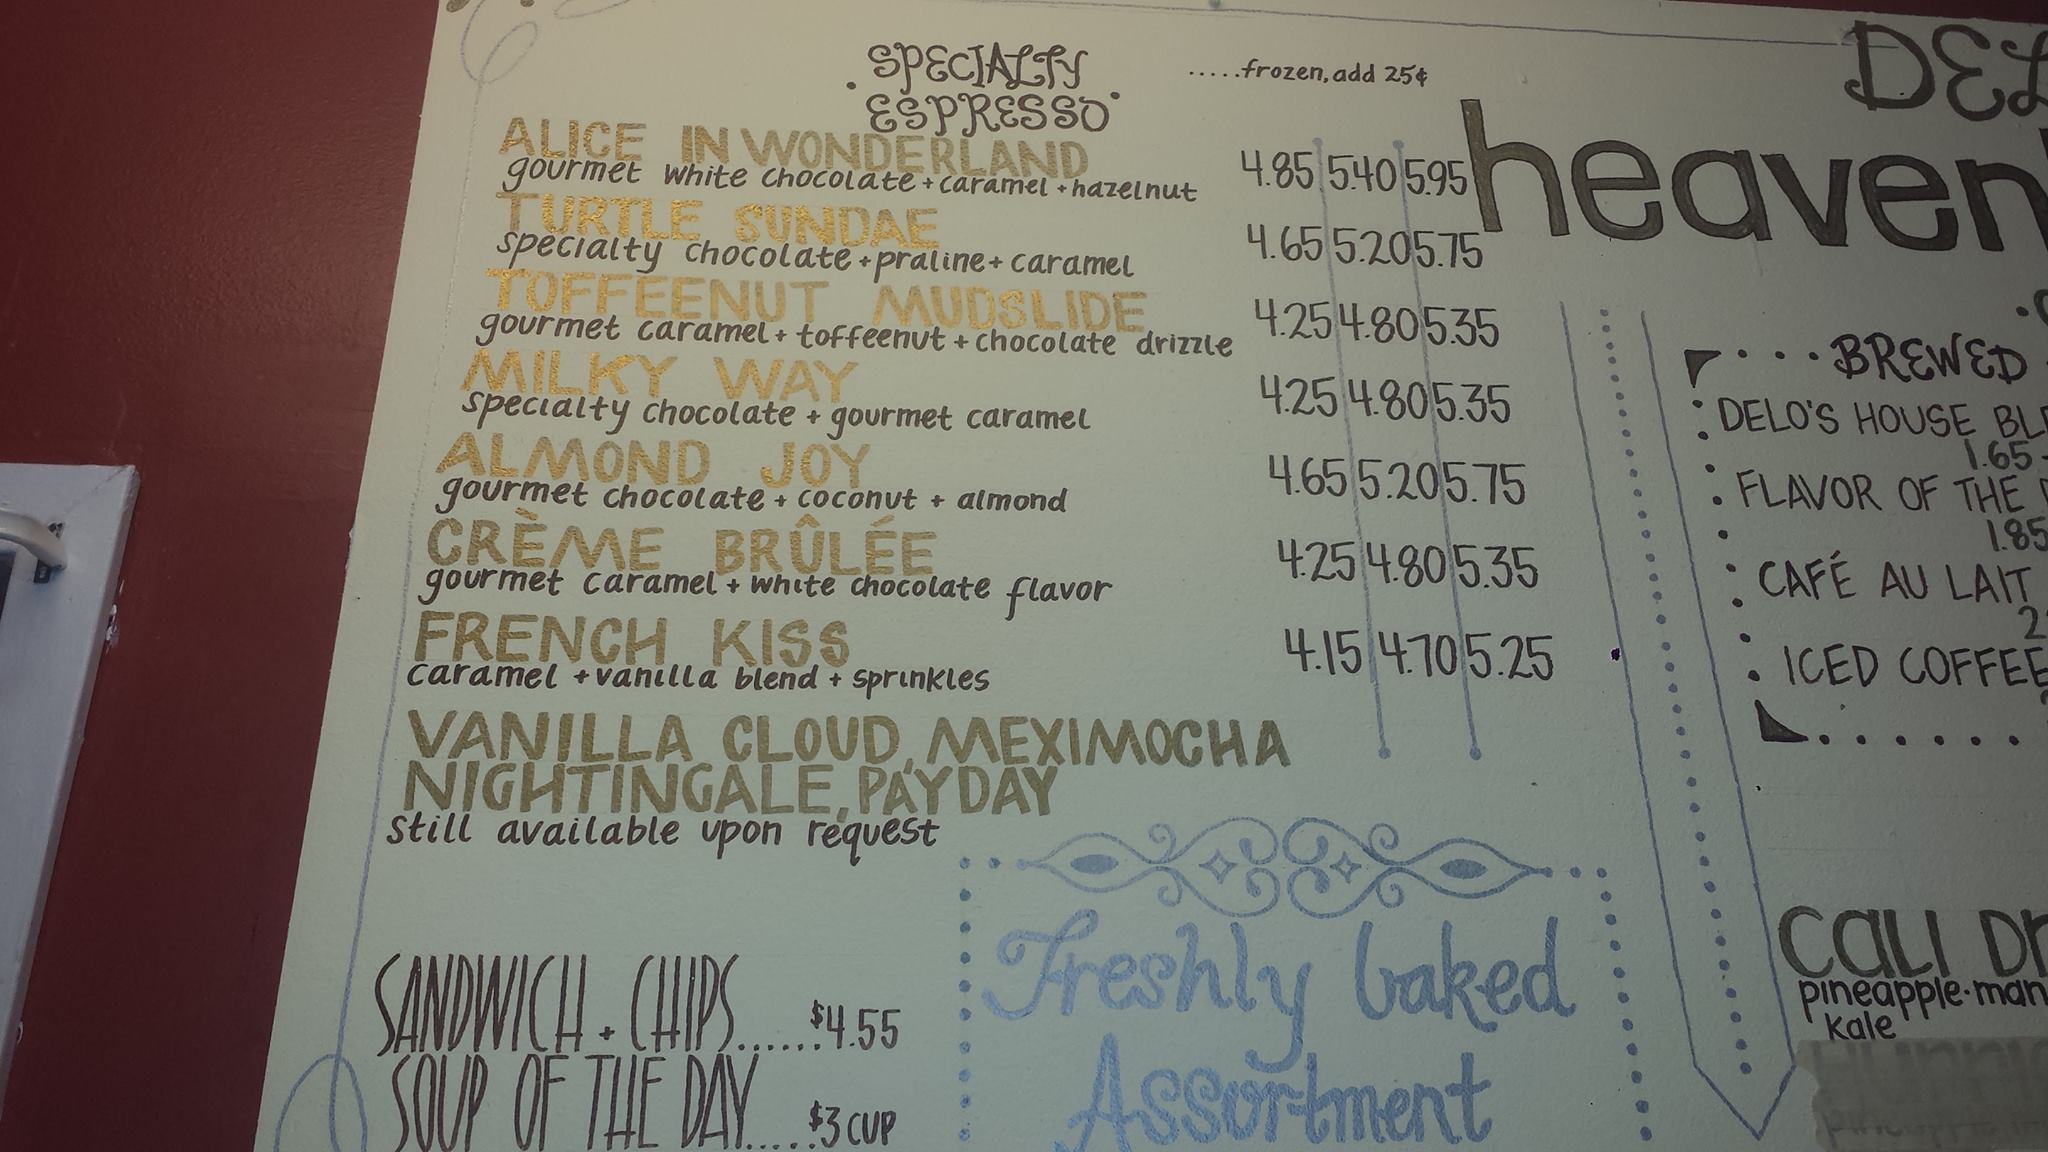 SPECIALTY
ESPRESSO
.....frozen, add 25¢
ALICE IN WONDERLAND
gourmet white chocolate + caramel + hazelnut
4.85 5.40 5.95
TURTLE SUNDAE
specialty chocolate + praline + caramel
4.65 5.20 5.75
TOFFEENUT MUDSLIDE
gourmet caramel + toffeenut + chocolate drizzle
4.25 4.80 5.35
MILKY WAY
specialty chocolate + gourmet caramel
4.25 4.80 5.35
ALMOND JOY
gourmet chocolate + coconut + almond
4.65 5.20 5.75
CRÈME BRÛLÉE
gourmet caramel + white chocolate flavor
4.25 4.80 5.35
FRENCH KISS
caramel + vanilla blend + sprinkles
4.15 4.70 5.25
VANILLA CLOUD, MEXIMOCHA
NIGHTINGALE, PAYDAY
still available upon request
SANDWICH + CHIPS......$4.55
SOUP OF THE DAY.....$3 CUP
Freshly baked
Assortment
DEL
heaven
BREWED
DELO'S HOUSE BL
1.65
FLAVOR OF THE
1.85
CAFÉ AU LAIT
2
ICED COFFEE
CALI
pineapple · man
kale